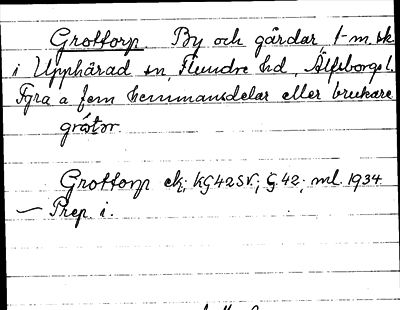 Grottorp. By och gårdar, 1 m. sk.
i Upphärad sn, Flundre hd, Älfsborgs l.
Fyra a fem hemmansdelar eller brukare
gråter.
Grottorp ek; KG42SV; G.42; ml. 1934.
— Prep i.